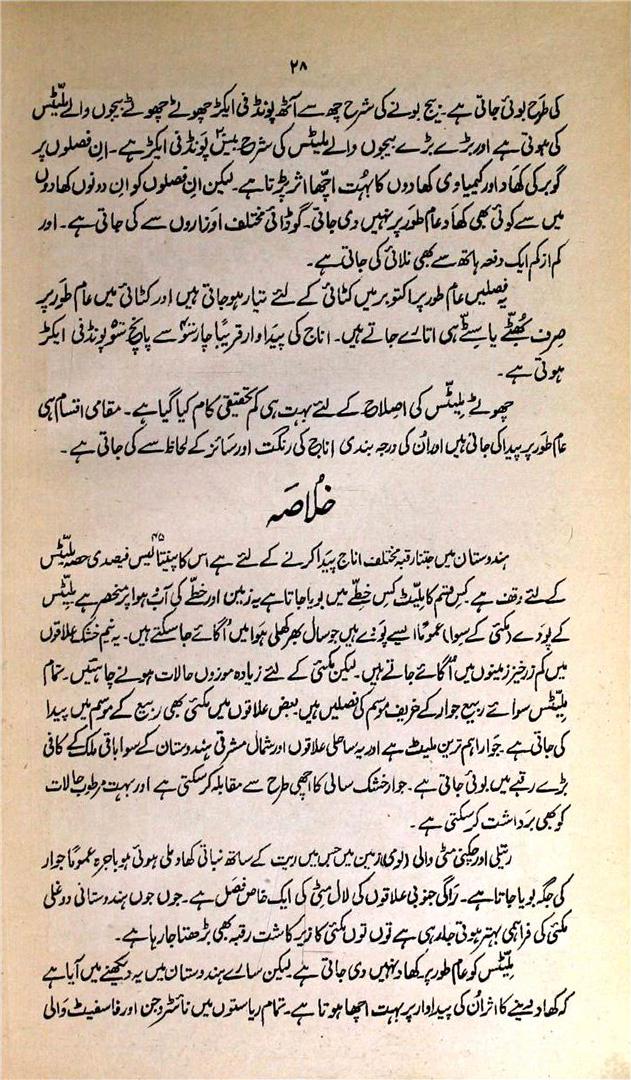 ۲۸
کی طرح بوئی جاتی ہے۔ بیج بونے کی شرح چھ سے آٹھ پونڈ فی ایکڑ چھوٹے چھوٹے بیجوں والے ملیٹس
کی ہوتی ہے اور بڑے بڑے بیجوں والے ملیٹس کی شرح بیس ۲۰ پونڈ فی ایکڑ ہے۔ ان فصلوں پر
گوبر کی کھاد اور کیمیاوی کھادوں کا بہت اچھا اثر پڑتا ہے۔ لیکن ان فصلوں کو ان دونوں کھادوں
میں سے کوئی بھی کھاد عام طور پر نہیں دی جاتی۔ گوڈائی مختلف اوزاروں سے کی جاتی ہے۔ اور
کم از کم ایک دفعہ ہاتھ سے بھی نلائی کی جاتی ہے۔
یہ فصلیں عام طور پر اکتوبر میں کٹائی کے لئے تیار ہو جاتی ہیں اور کٹائی میں عام طور پر
صرف بھٹے یا سٹے ہی اتارے جاتے ہیں۔ اناج کی پیداوار قریباً چار سو سے پانچ سو پونڈ فی ایکڑ
ہوتی ہے۔
چھوٹے ملیٹس کی اصلاح کے لئے بہت ہی کم تحقیقی کام کیا گیا ہے۔ مقامی اقسام ہی
عام طور پر پیدا کی جاتی ہیں اور ان کی درجہ بندی اناج کی رنگت اور سائز کے لحاظ سے کی جاتی ہے۔
خلاصہ
ہندوستان میں جتنا رقبہ مختلف اناج پیدا کرنے کے لئے ہے اس کا پینتالیس ۴۵ فیصدی حصہ ملیٹس
کے لئے وقف ہے۔ کس قسم کا ملیٹ کس خطے میں بویا جاتا ہے یہ زمین اور خطے کی آب و ہوا پر منحصر ہے ملیٹس
کے پودے (مکئی کے سوا) عموماً ایسے پودے ہیں جو سال بھر کھلی ہوا میں اگائے جا سکتے ہیں۔ یہ نیم خشک علاقوں
میں کم زرخیز زمینوں میں اگائے جاتے ہیں۔ لیکن مکئی کے لئے زیادہ موزوں حالات ہونے چاہئیں۔ تمام
ملیٹس سوائے ربیع جوار کے خریف موسم کی فصلیں ہیں بعض علاقوں میں مکئی بھی ربیع کے موسم میں پیدا
کی جاتی ہے۔ جوار اہم ترین ملیٹ ہے اور یہ ساحلی علاقوں اور شمال مشرقی ہندوستان کے سوا باقی ملک کے کافی
بڑے رقبے میں بوئی جاتی ہے۔ جوار خشک سالی کا اچھی طرح سے مقابلہ کر سکتی ہے اور بہت مرطوب حالات
کو بھی برداشت کر سکتی ہے۔
ریتلی اور چکنی مٹی والی (لوی) زمین میں جس میں ریت کے ساتھ نباتی کھاد ملی ہوئی ہو باجرہ عموماً جوار
کی جگہ بویا جاتا ہے۔ راگی جنوبی علاقوں کی لال مٹی کی ایک خاص فصل ہے۔ جوں جوں ہندوستانی دوغلی
مکئی کی فراہمی بہتر ہوتی جا رہی ہے توں توں مکئی کا زیر کاشت رقبہ بھی بڑھتا جا رہا ہے۔
ملیٹس کو عام طور پر کھاد نہیں دی جاتی ہے۔ لیکن سارے ہندوستان میں یہ دیکھنے میں آیا ہے
کہ کھاد دینے کا اثر ان کی پیداوار پر بہت اچھا ہوتا ہے۔ تمام ریاستوں میں نائٹروجن اور فاسفیٹ والی